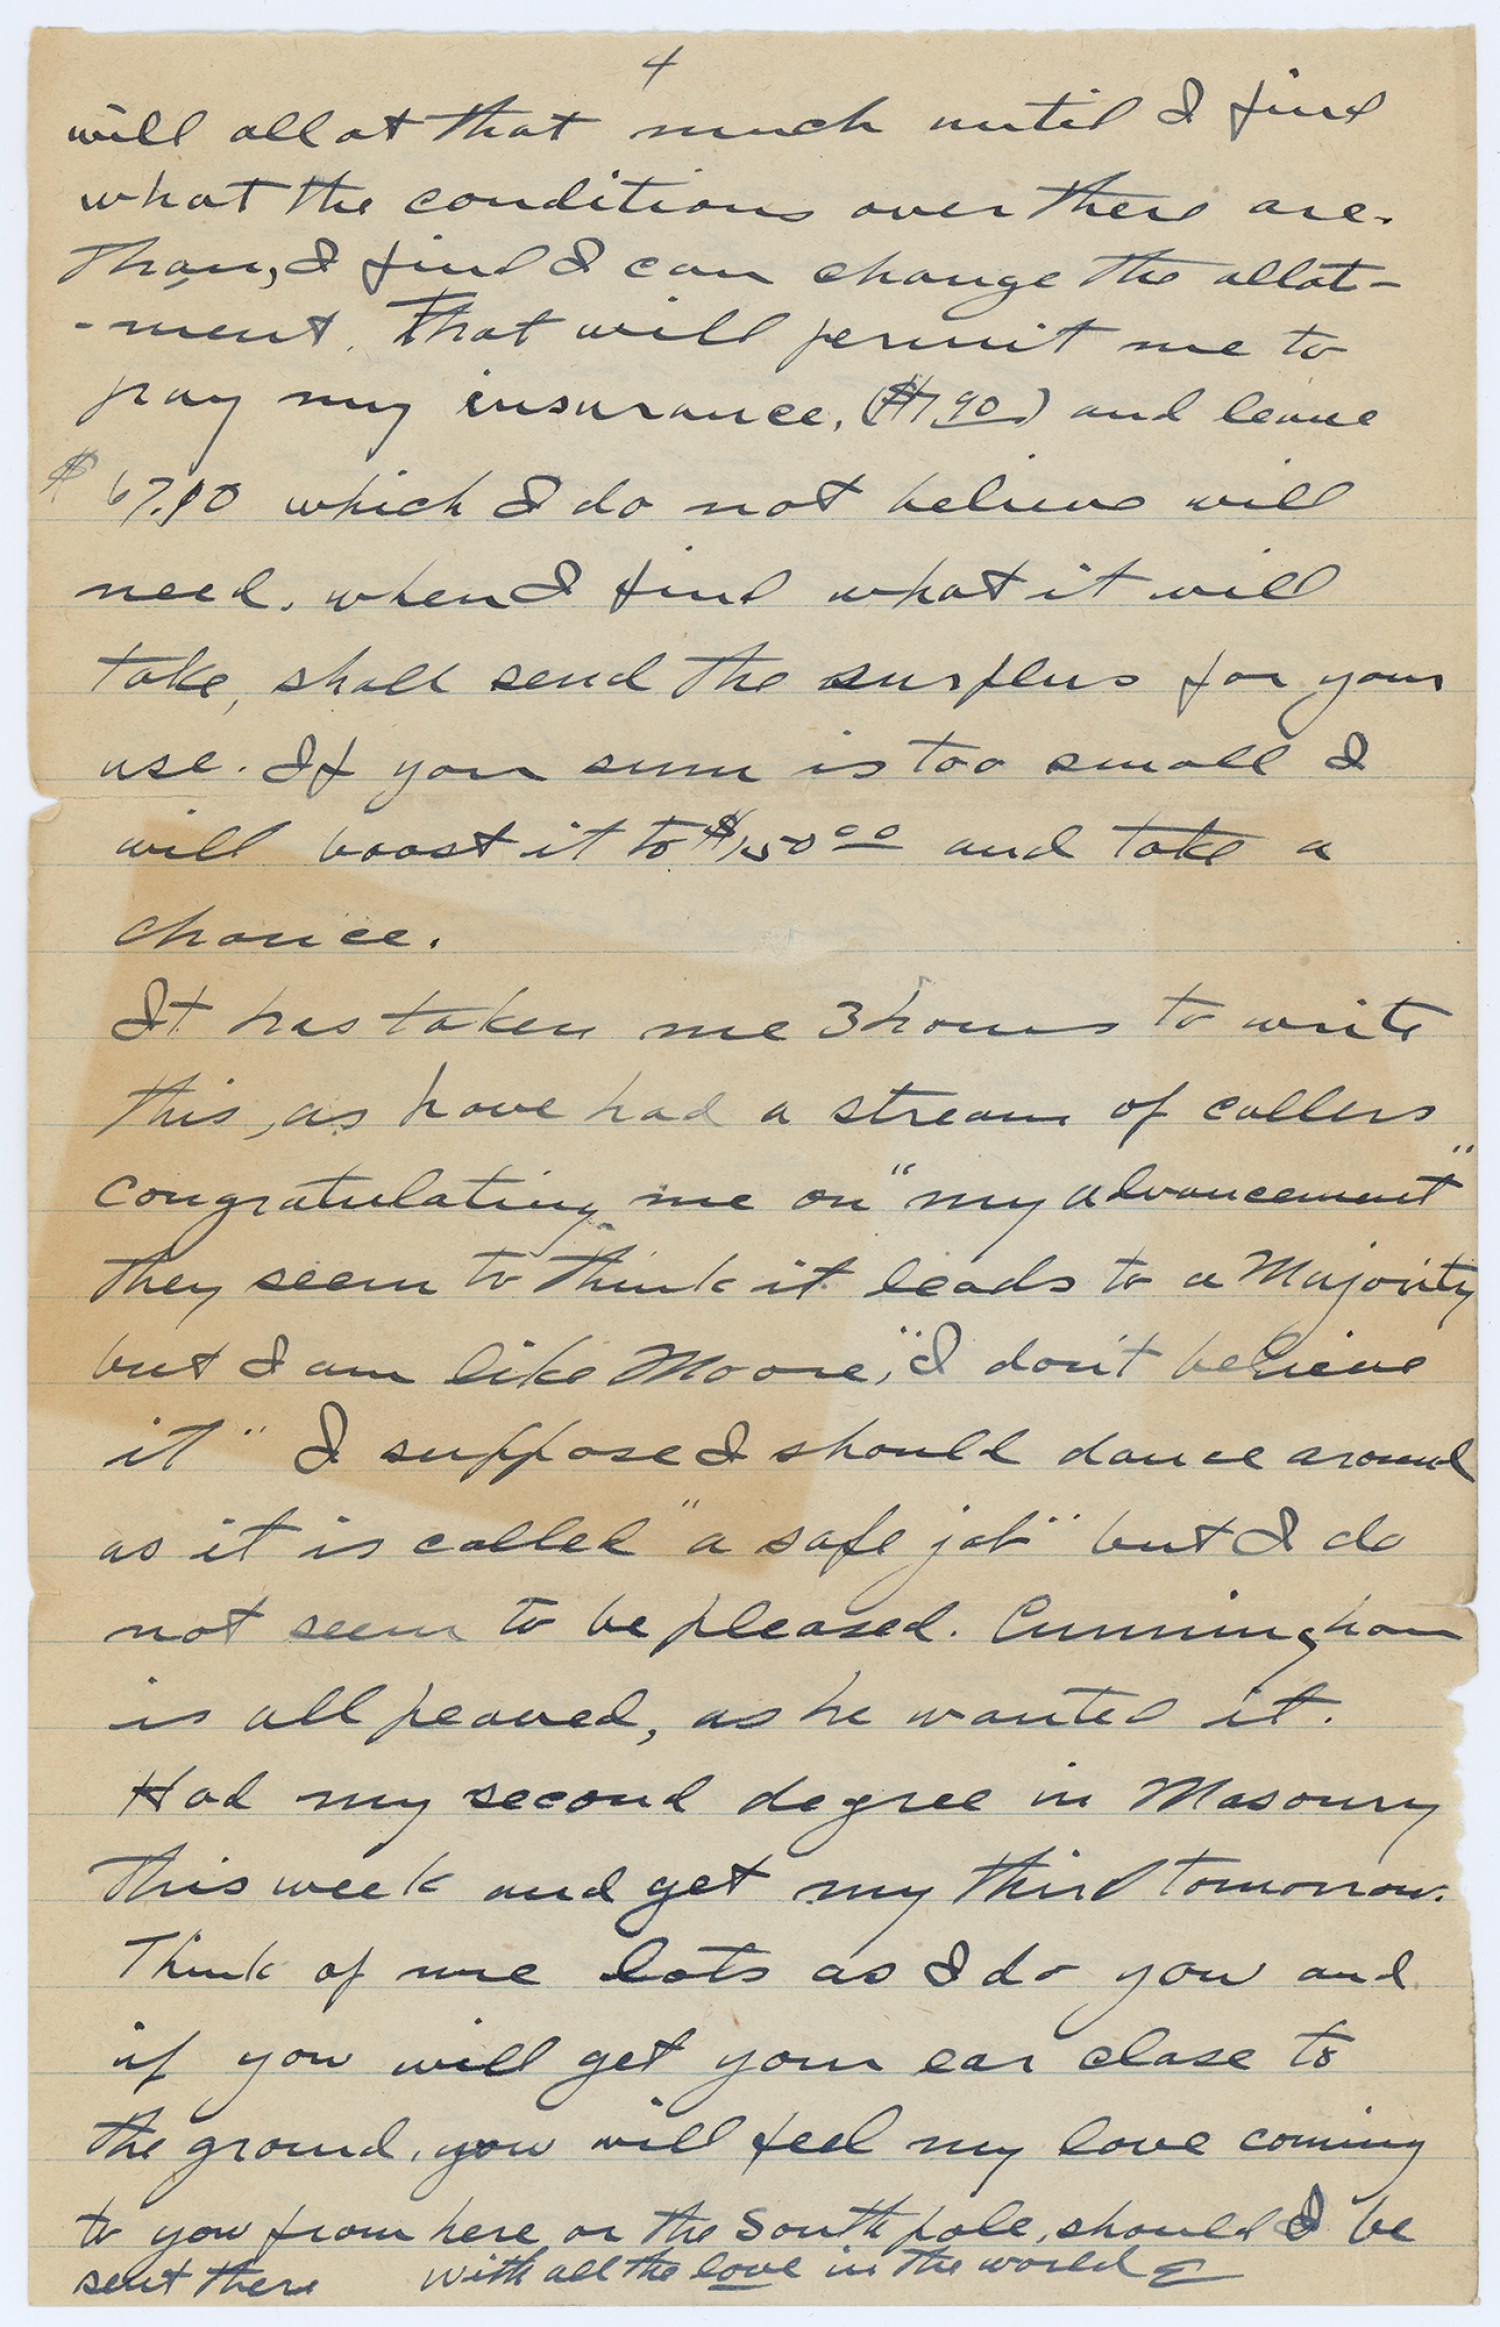 4
will allot that much until I find
what the conditions over there are.
Than, I find I can change the allot-
-ment. That will permit me to
pay my insurance, ($7.90) and leave
$67.10 which I do not believe will
need. when I find what it will
take, shall send the surplus for your
use. If your sum is too small I
will boost it to $150.00 and take a
chance.
It has taken me 3 hours to write
this, as have had a stream of callers
congratulating me on "my advancement"
they seem to think it leads to a Majority
but I am like Moore, "I don't believe
it" I suppose I should dance around
as it is called "a safe job" but I do
not seem to be pleased. Cunningham
is all peaved, as he wanted it.
Had my second degree in Masonry
this week and get my third tomorrow.
Think of me lots as I do you and
if you will get your ear close to
the ground, you will feel my love coming
to you from here or the South pole, should I be
sent there with all the love in the world E